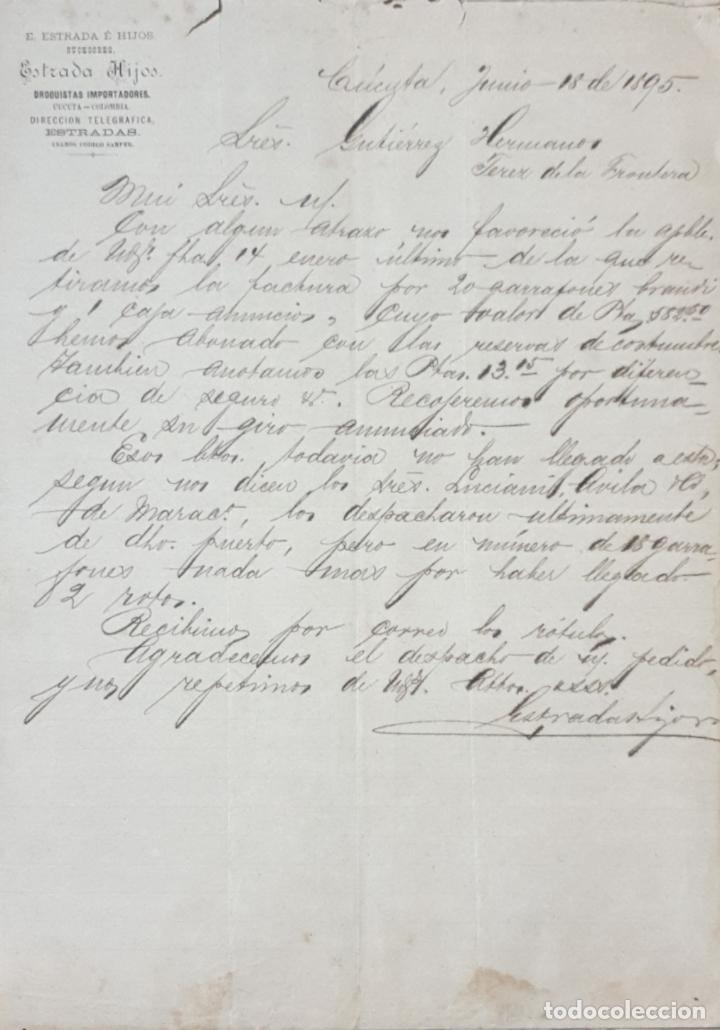 E. ESTRADA É HIJOS.
SUCESORES.
Estrada Hijos.
DROGUISTAS IMPORTADORES.
CUCUTA - COLOMBIA.
DIRECCION TELEGRAFICA,
ESTRADAS.
USAMOS CODIGO SAMPER.
Cúcuta, Junio 18 de 1895.
Srēs. Gutiérrez Hermanos
Jerez de la Frontera
Mui Srēs. ns/.
Con algun atrazo nos favoreció la aptble.
de Uds. fha. 14 enero último de la que re-
tiramos la factura por 20 garrafones brandi
y 1 caja anuncios, Cuyo valor de Pta, 582.50
hemos abonado con las reservas de costumbre,
tambien anotamos las Ptas. 13.15 por diferen-
cia de seguro &. Recojeremos oportuna-
mente su giro anunciado.
Esos btos. todavia no han llegado a esta;
segun nos dicen los Srēs. Luciani, Avila &Co,
de Maracº, los despacharon ultimamente
de dho. puerto, pero en número de 18 garra-
fones nada mas por haber llegado
2 rotos.
Recibimos por correo los rótulos.
Agradecemos el despacho de n/. pedido,
y nos repetimos de Uds. Attos. SSS.
Estrada Hijos
todocoleccion